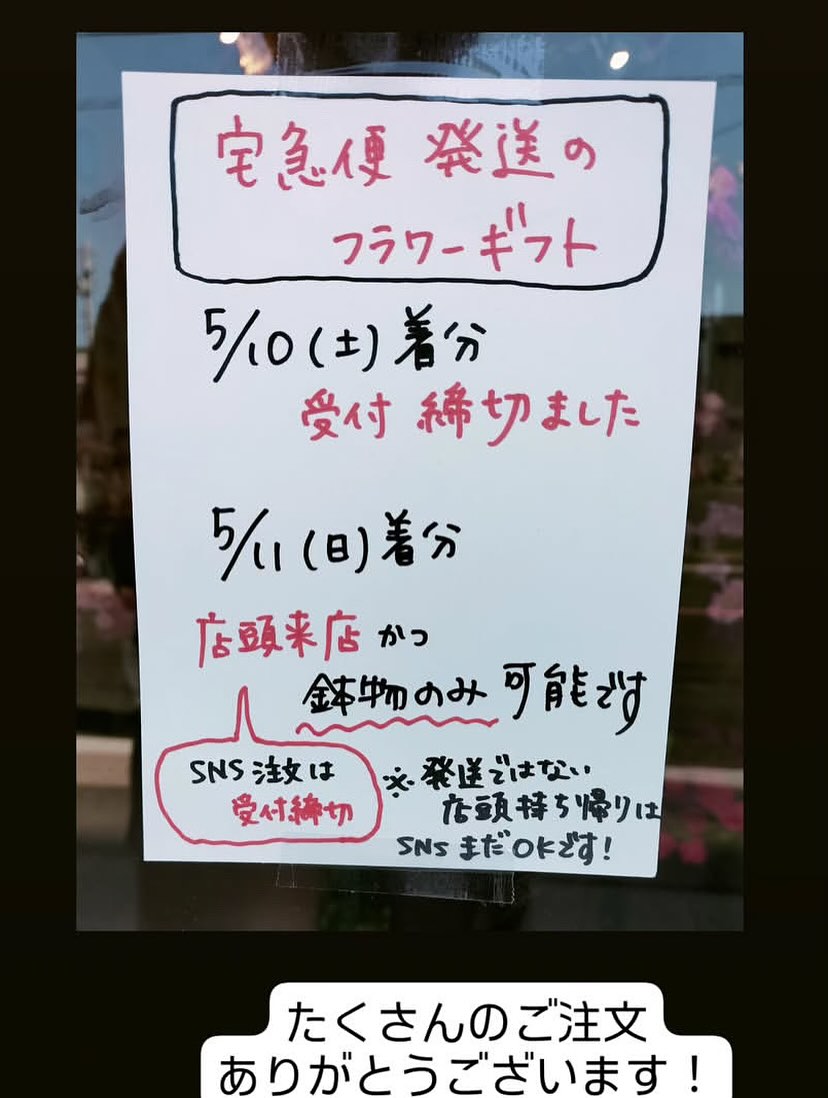 宅急便 発送の
フラワーギフト
5/10(土)着分
受付 締切ました
5/11(日)着分
店頭来店かつ
鉢物のみ可能です
SNS注文は
受付締切
※発送ではない
店頭持ち帰りは
SNSまだOKです!
たくさんのご注文
ありがとうございます！